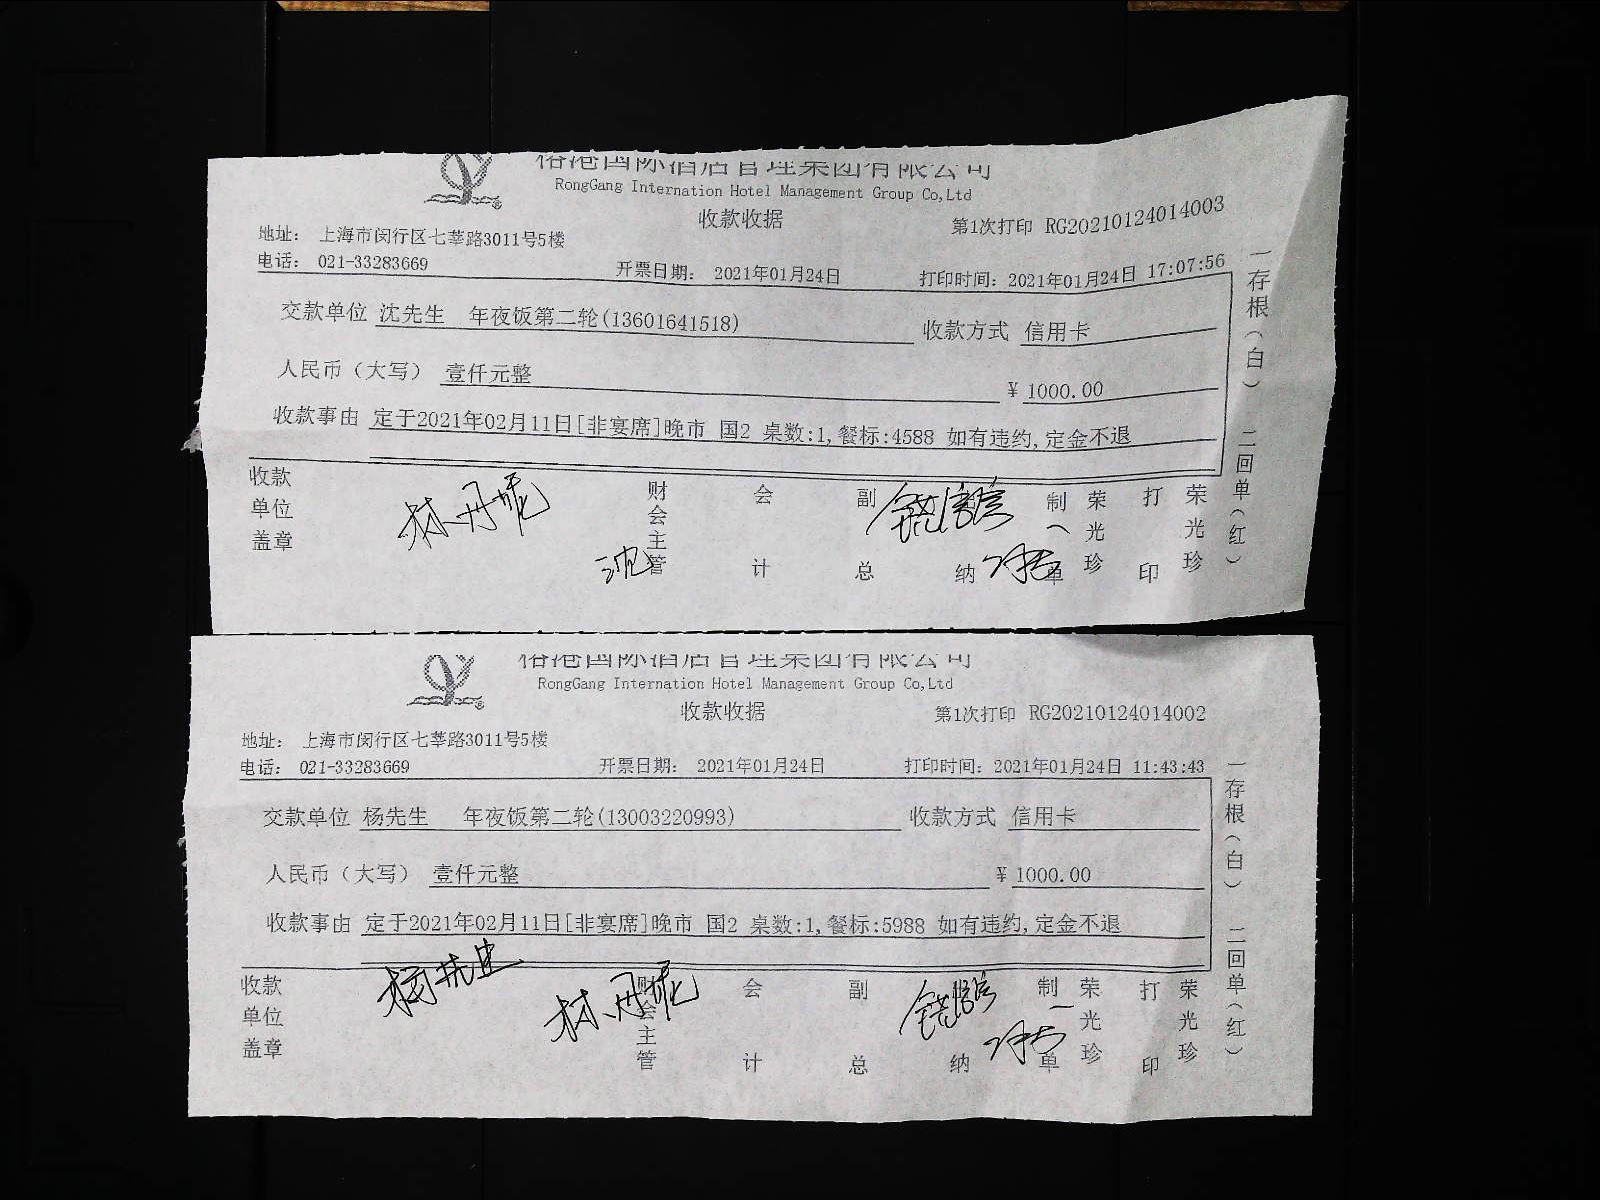 裕港国际酒店管理集团有限公司
RongGang Internation Hotel Management Group Co,Ltd
收款收据
第1次打印 RG20210124014003
地址： 上海市闵行区七莘路3011号5楼
电话： 021-33283669 开票日期： 2021年01月24日 打印时间：2021年01月24日 17:07:56
交款单位 沈先生 年夜饭第二轮(13601641518) 收款方式 信用卡
人民币（大写） 壹仟元整 ￥1000.00
收款事由 定于2021年02月11日[非宴席]晚市 国2 桌数:1,餐标:4588 如有违约,定金不退
收款单位盖章 林丹妮 财会主管 会计 副总 纳 制单 荣光珍 打印 荣光珍
沈
一存根（白） 二回单（红）
裕港国际酒店管理集团有限公司
RongGang Internation Hotel Management Group Co,Ltd
收款收据
第1次打印 RG20210124014002
地址： 上海市闵行区七莘路3011号5楼
电话： 021-33283669 开票日期： 2021年01月24日 打印时间：2021年01月24日 11:43:43
交款单位 杨先生 年夜饭第二轮(13003220993) 收款方式 信用卡
人民币（大写） 壹仟元整 ￥1000.00
收款事由 定于2021年02月11日[非宴席]晚市 国2 桌数:1,餐标:5988 如有违约,定金不退
杨先生
收款单位盖章 林丹妮 财会主管 会计 副总 纳 制单 荣光珍 打印 荣光珍
一存根（白） 二回单（红）